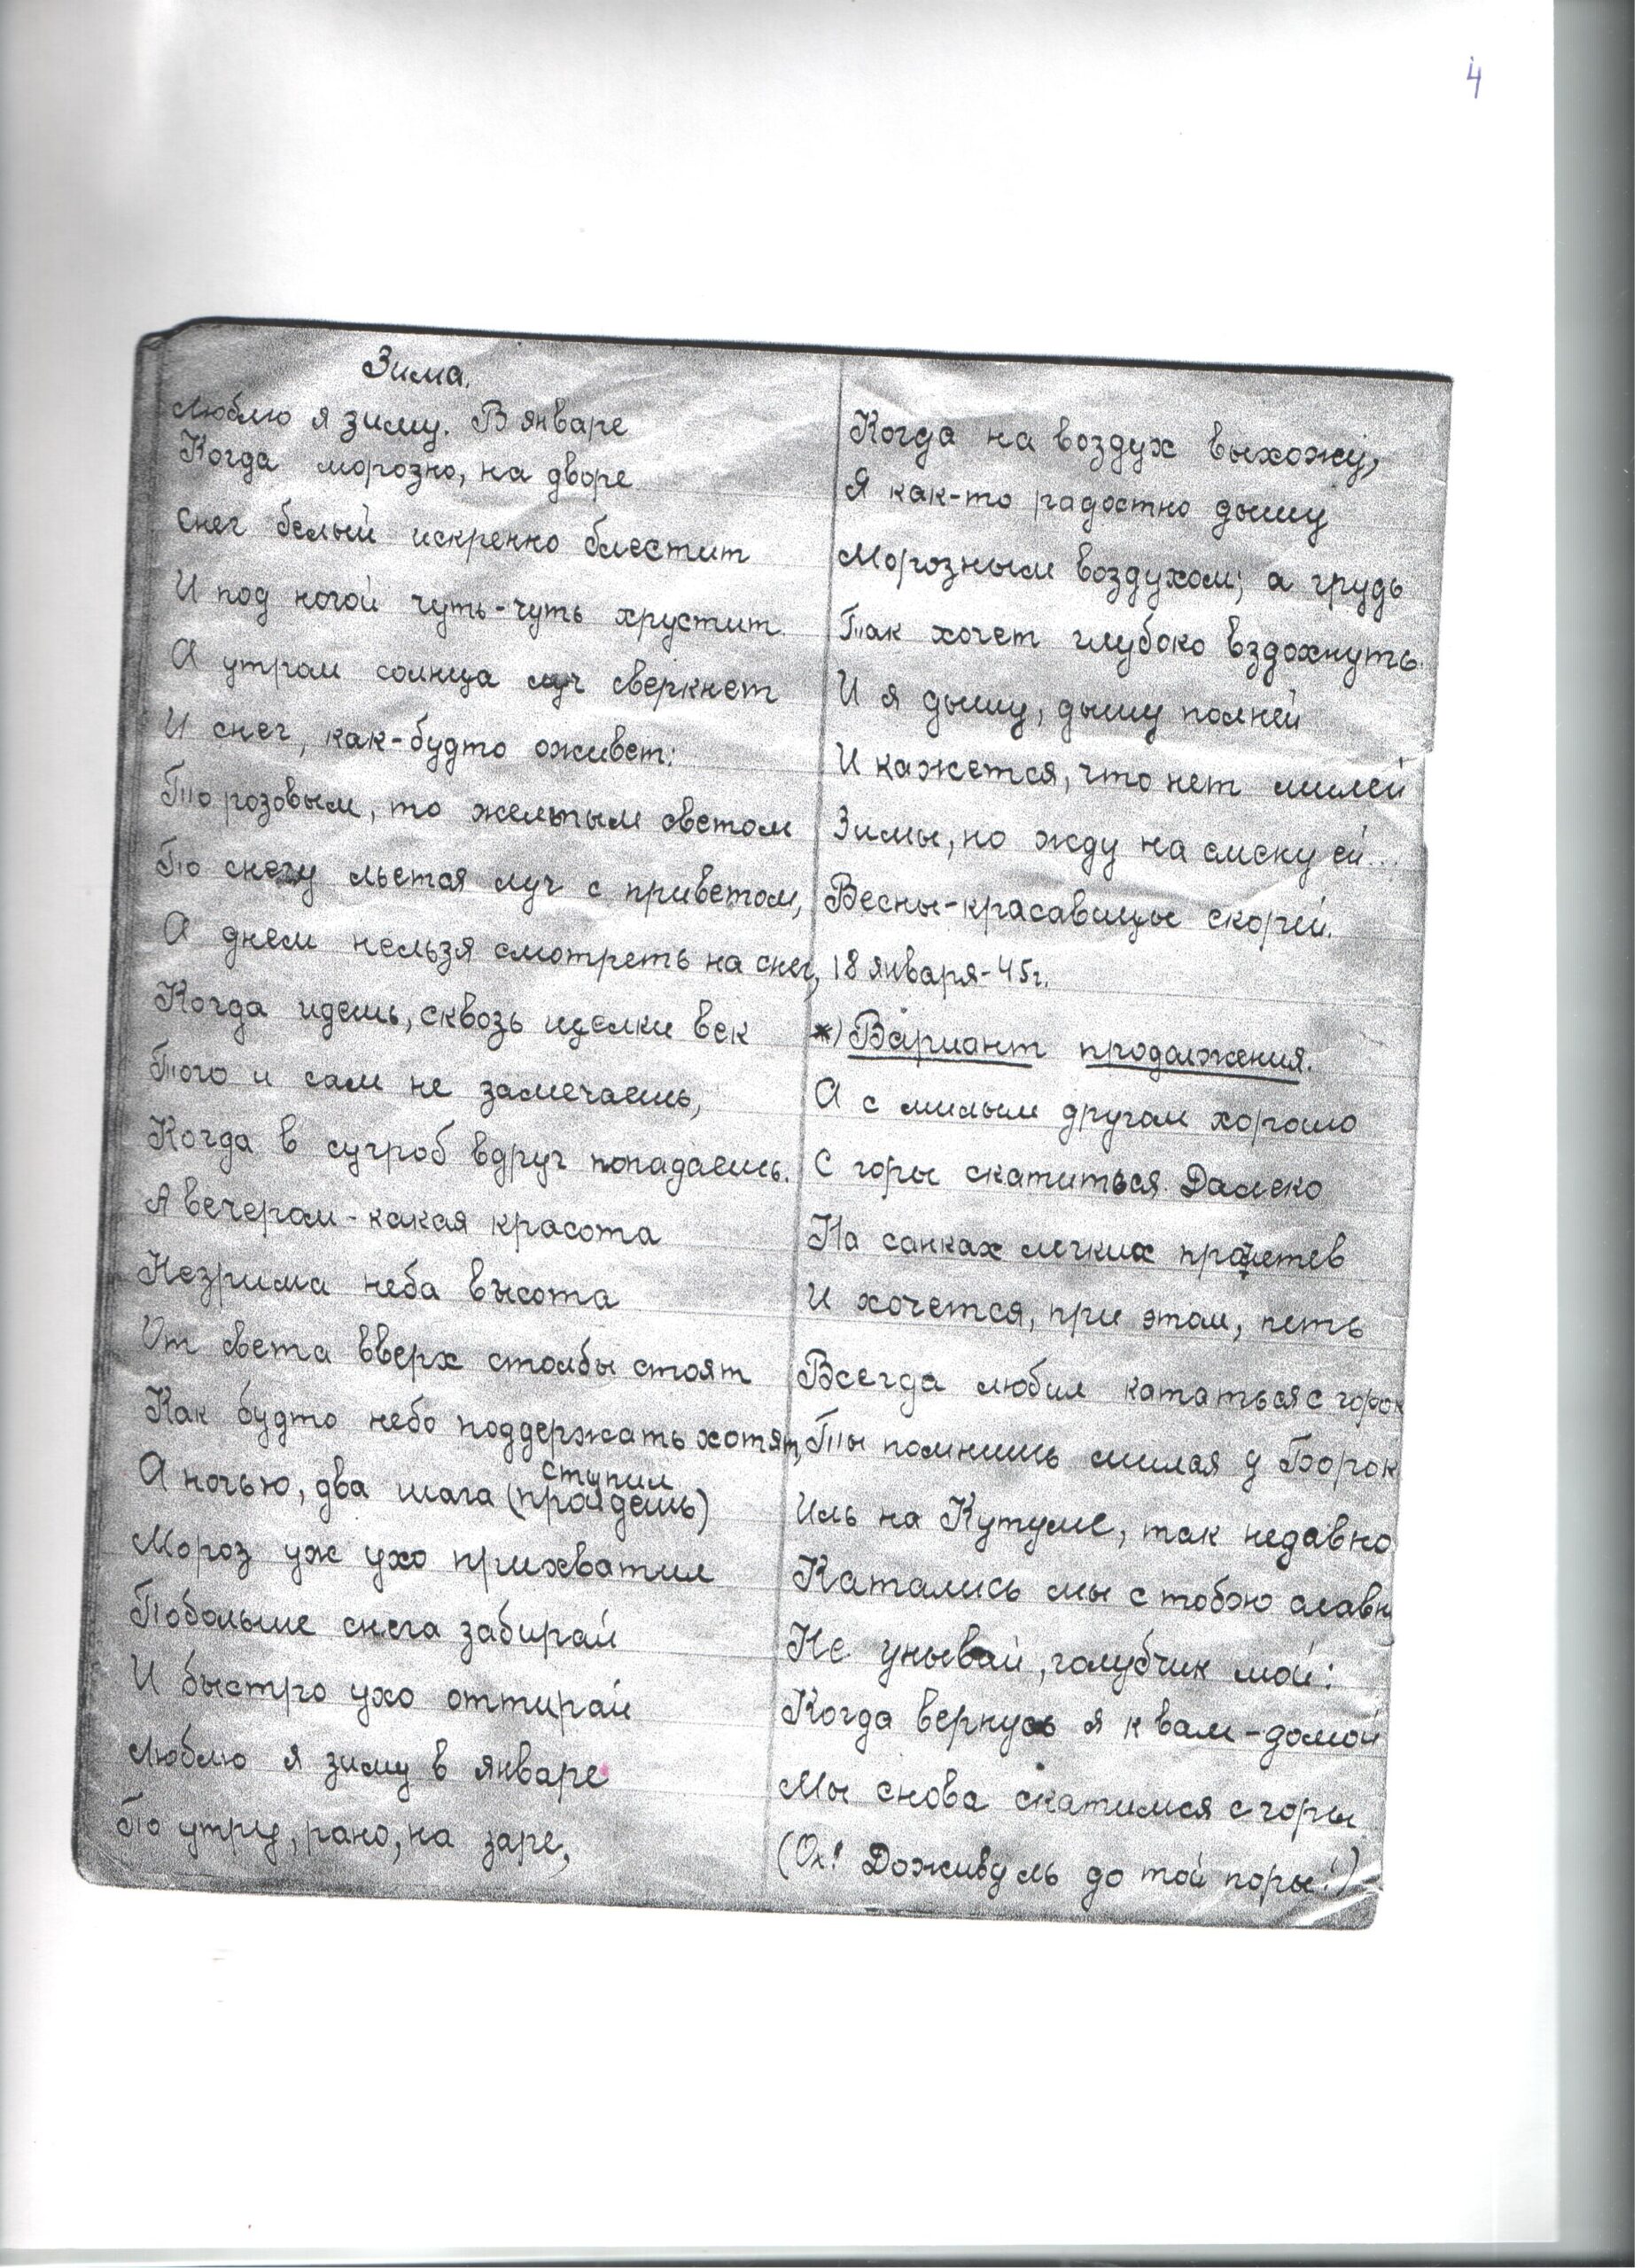 4
Зима.
Люблю я зиму. В январе
Когда морозно, на дворе
Снег белый искренно блестит
И под ногой чуть-чуть хрустит.
А утром солнца луч сверкнет
И снег, как-будто оживет:
То розовым, то желтым светом
По снегу льётся луч с приветом,
А днем нельзя смотреть на снег,
Когда идешь, сквозь щелки век
Того и сам не замечаешь,
Когда в сугроб вдруг попадаешь.
А вечером - какая красота
Незрима неба высота
От света вверх столбы стоят
Как будто небо поддержать хотят,
ступил
А ночью, два шага (пройдешь)
Мороз уж ухо прихватил
Побольше снега забирай
И быстро ухо оттирай
Люблю я зиму в январе
По утру, рано, на заре,
Когда на воздух выхожу,
Я как-то радостно дышу
Морозным воздухом; а грудь
Так хочет глубоко вздохнуть.
И я дышу, дышу полней
И кажется, что нет милей
Зимы, но жду на смену ей...
Весны-красавицы скорей.
18 января-45г.
*) Вариант продолжения.
А с милым другом хорошо
С горы скатиться. Далеко
На санках легких пролетев
И хочется, при этом, петь
Всегда любил кататься с горок
Ты помнишь милая у Борок
Иль на Кутуме, так недавно
Катались мы с тобою славн
Не унывай, голубчик мой:
Когда вернусь я к вам-домой
Мы снова скатимся с горы
(Ох! Доживу ль до той поры!)